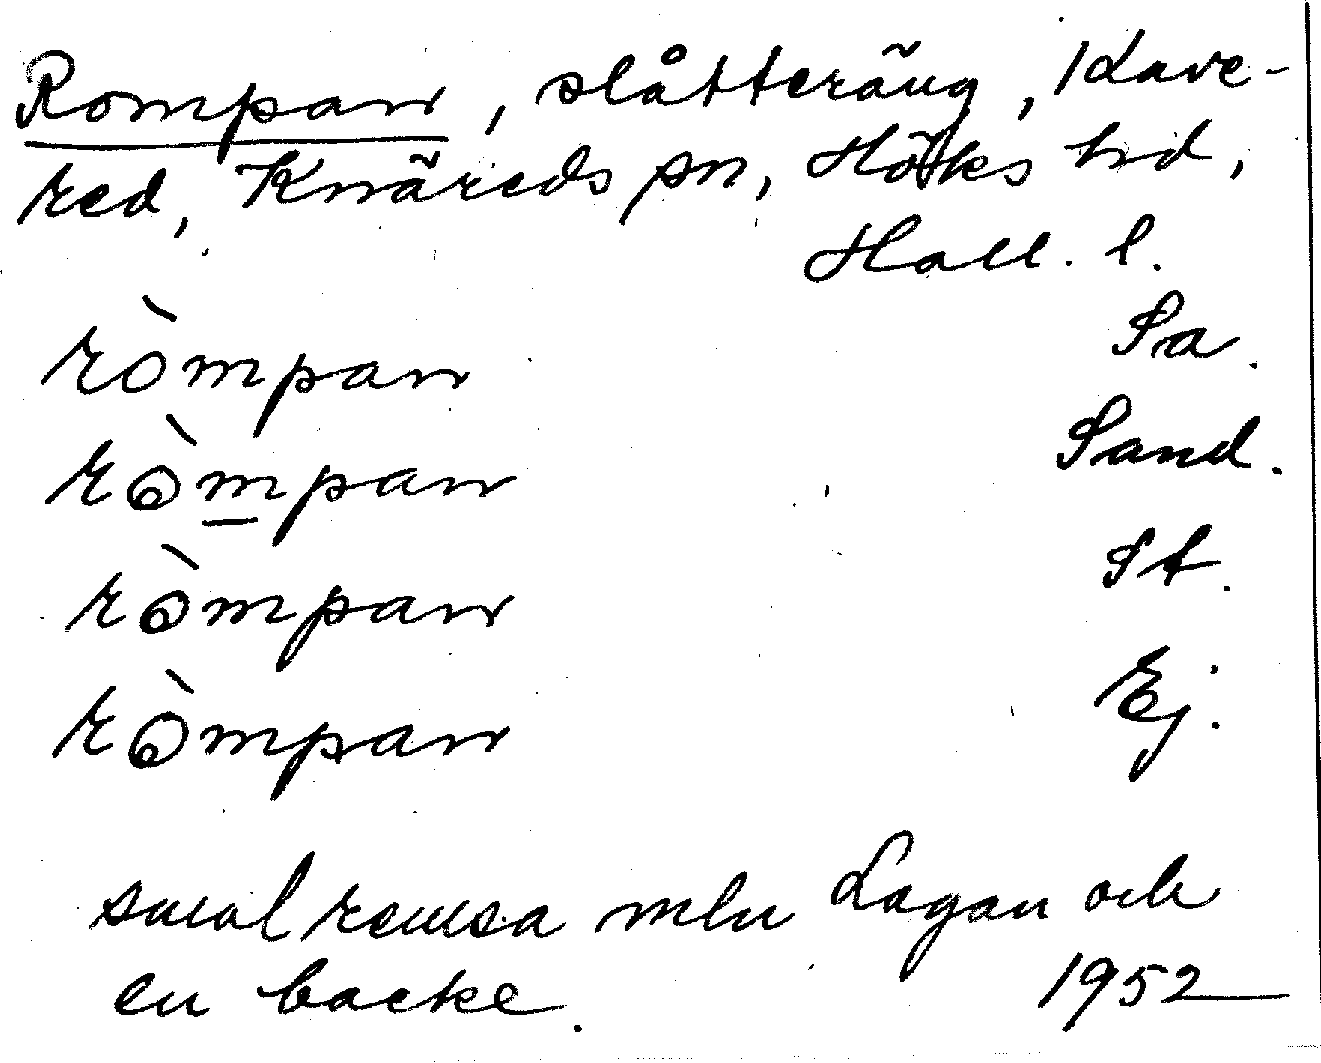 Rompan, slåtteräng, Kave-
red, Knäreds sn, Höks hd,
Hall. l.
ròmpan Sa.
ròmpan Sand.
ròmpan St.
ròmpan Ej.
smal remsa mln Lagan och
en backe. 1952